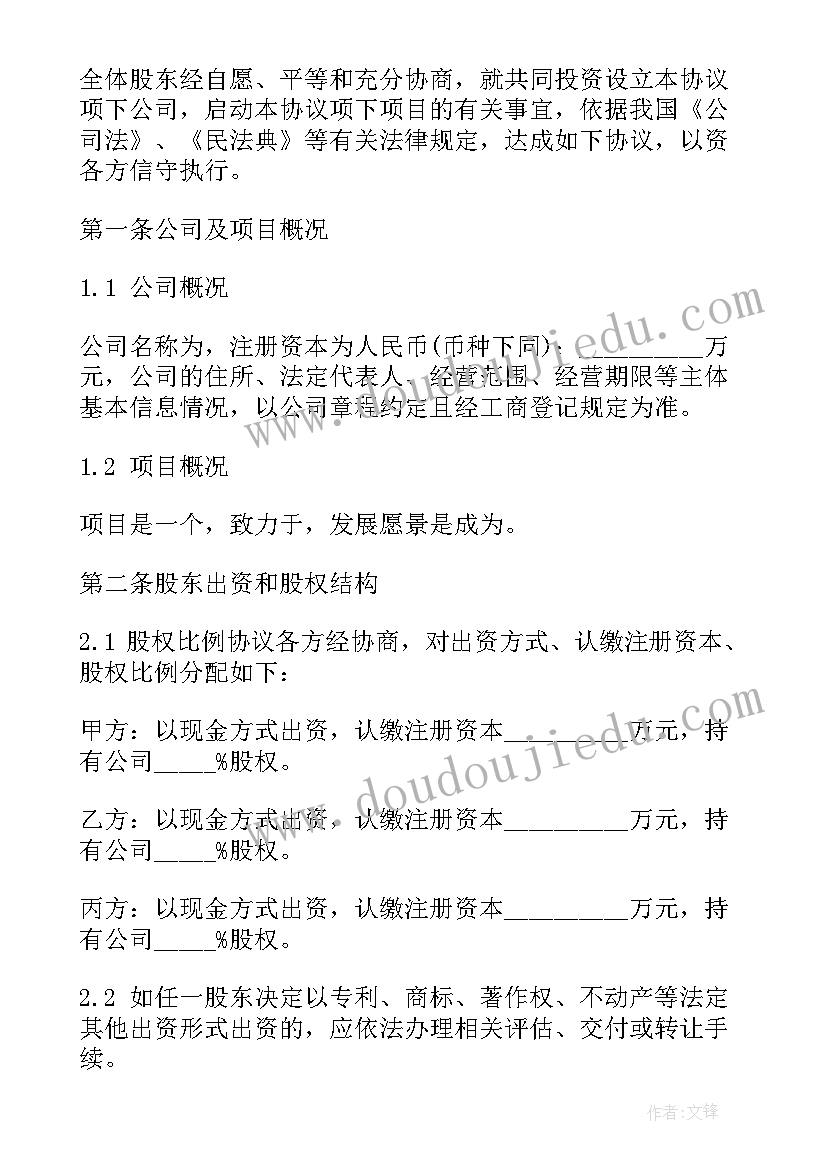 全体股东经自愿、平等和充分协商，就共同投资设立本协议
项下公司，启动本协议项下项目的有关事宜，依据我国《公
司法》、《民法典》等有关法律规定，达成如下协议，以资
各方信守执行。
第一条公司及项目概况
1.1 公司概况
公司名称为，注册资本为人民币(币种下同)：__________万
元，公司的住所、法定代表人、经营范围、经营期限等主体
基本信息情况，以公司章程约定且经工商登记规定为准。
www.doudoujiedu.com
1.2 项目概况
项目是一个，致力于，发展愿景是成为。
第二条股东出资和股权结构
2.1 股权比例协议各方经协商，对出资方式、认缴注册资本、
股权比例分配如下：
甲方：以现金方式出资，认缴注册资本__________万元，持
有公司_____%股权。
乙方：以现金方式出资，认缴注册资本__________万元，持
有公司_____%股权。
www.doudoujiedu.com
丙方：以现金方式出资，认缴注册资本__________万元，持
有公司_____%股权。
2.2 如任一股东决定以专利、商标、著作权、不动产等法定
其他出资形式出资的，应依法办理相关评估、交付或转让手
续。
作者:文锋